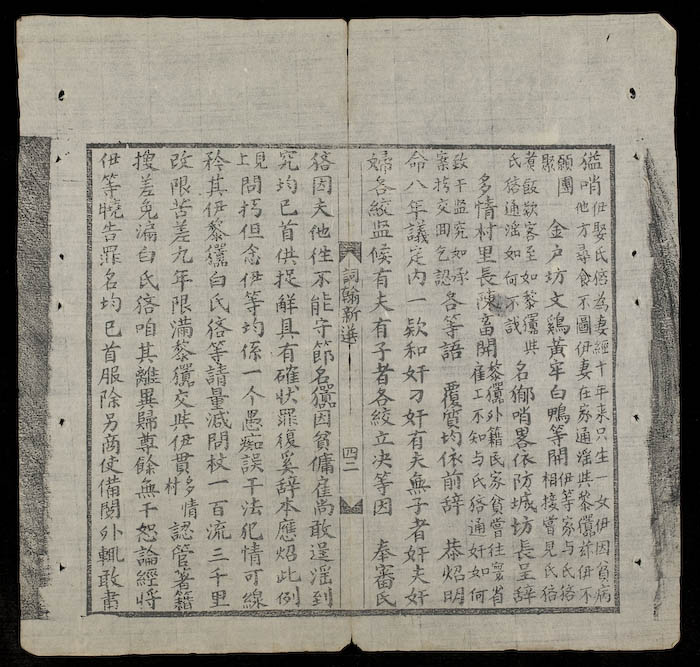 哨伊娶氏為妻經十年來只生一女伊因貧病
他方尋食不圖伊妻在家通淫與黎伊不
願團聚 金户坊文鷄黃牢白鴨等開伊等家與氏相接嘗見氏
煮飯歡客至如黎與氏通淫如何不識 名鄉哨畧依防城坊長呈辞
多情村里長陳畜開黎外籍民家貧嘗往省雇工不知與氏通奸如何
致干監究如承案拷交回乞認 各等語 覆質均依前辞 恭炤明
命八年議定内一欵和奸刁奸有夫無子者奸夫奸
婦各絞監候有夫有子者各絞立决等因 奉審氏
詞翰新選 四二
因夫他徃不能守節名因貧傭雇尚敢逞淫到
究均已首供捉觧具有確狀罪復奚辞本應炤此例
見上問拷但念伊等均係一个愚痴誤干法犯情可線
矜其伊黎白氏等請量減問杖一百流三千里
改限苦差九年限滿黎交與伊貫多情村認管著籍
搜差免漏白氏咱其離異歸尊餘無干恕論經將
伊等曉告罪名均已首服除另商使備閱外輒敢肅